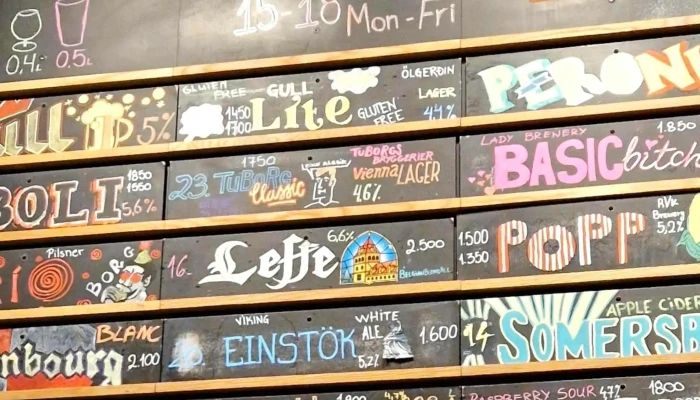 15-18 Mon-Fri
0,4L 0,5L
5%
GLUTEN FREE
GULL
Lite
1450
1700
GLUTEN FREE
ÖLGERÐIN
LAGER
4,4%
PERONI
BOLI
1850
1550
5,6%
1750
23. TUBORG
Classic
TUBORGS
BRYGGERIER
Vienna LAGER
4.6%
LADY BREWERY
1.850
BASIC bitch
Pilsner
BORG
16.
Leffe
6,6%
2.500
BELGIUM BLONDE ALE
1.500
1.350
POPP
RVK
Brewery
5,2%
BLANC
nbourg
2.100
20
VIKING
EINSTÖK
WHITE
ALE
5,2%
1.600
14
APPLE CIDER
SOMERSB
1800
4,7%
RASPBERRY SOUR 4,7%
1800